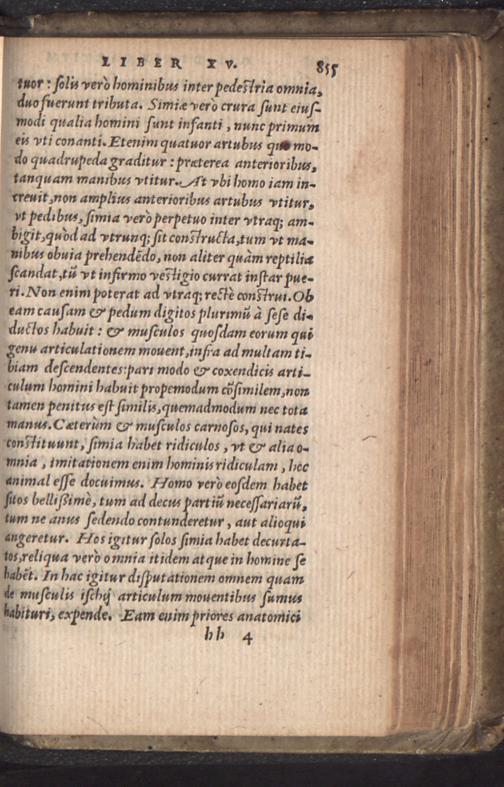 LIBER XV. 855
tuor : solis verò hominibus inter pedestria omnia,
duo fuerunt tributa. Simiæ verò crura sunt eius-
modi qualia homini sunt infanti , nunc primum
eis vti conanti. Etenim quatuor artubus quo mo-
do quadrupeda graditur : præterea anterioribus,
tanquam manibus vtitur. At vbi homo iam in-
creuit, non amplius anterioribus artubus vtitur,
vt pedibus, simia verò perpetuo inter vtraq; am-
bigit, quòd ad vtrunq; sit constructa, tum vt ma-
nibus obuia prehendēdo, non aliter quàm reptilia
scandat, tū vt infirmo vestigio currat instar pue-
ri. Non enim poterat ad vtraq; rectè construi. Ob
eam causam & pedum digitos plurimū à sese di-
ductos habuit : & musculos quosdam eorum qui
genu articulationem mouent, infra ad multam ti-
biam descendentes: pari modo & coxendicis arti-
culum homini habuit propemodum cōsimilem, non
tamen penitus est similis, quemadmodum nec tota
manus. Cæterùm & musculos carnosos, qui nates
constituunt, simia habet ridiculos , vt & alia o-
mnia , imitationem enim hominis ridiculam , hoc
animal esse docuimus. Homo verò eosdem habet
sitos bellissimè, tum ad decus partiū necessariarū,
tum ne anus sedendo contunderetur , aut alioqui
angeretur. Hos igitur solos simia habet decurta-
tos, reliqua verò omnia itidem atque in homine se
habēt. In hac igitur disputationem omnem quam
de musculis ischij articulum mouentibus sumus
habituri, expende. Eam enim priores anatomici
hh 4